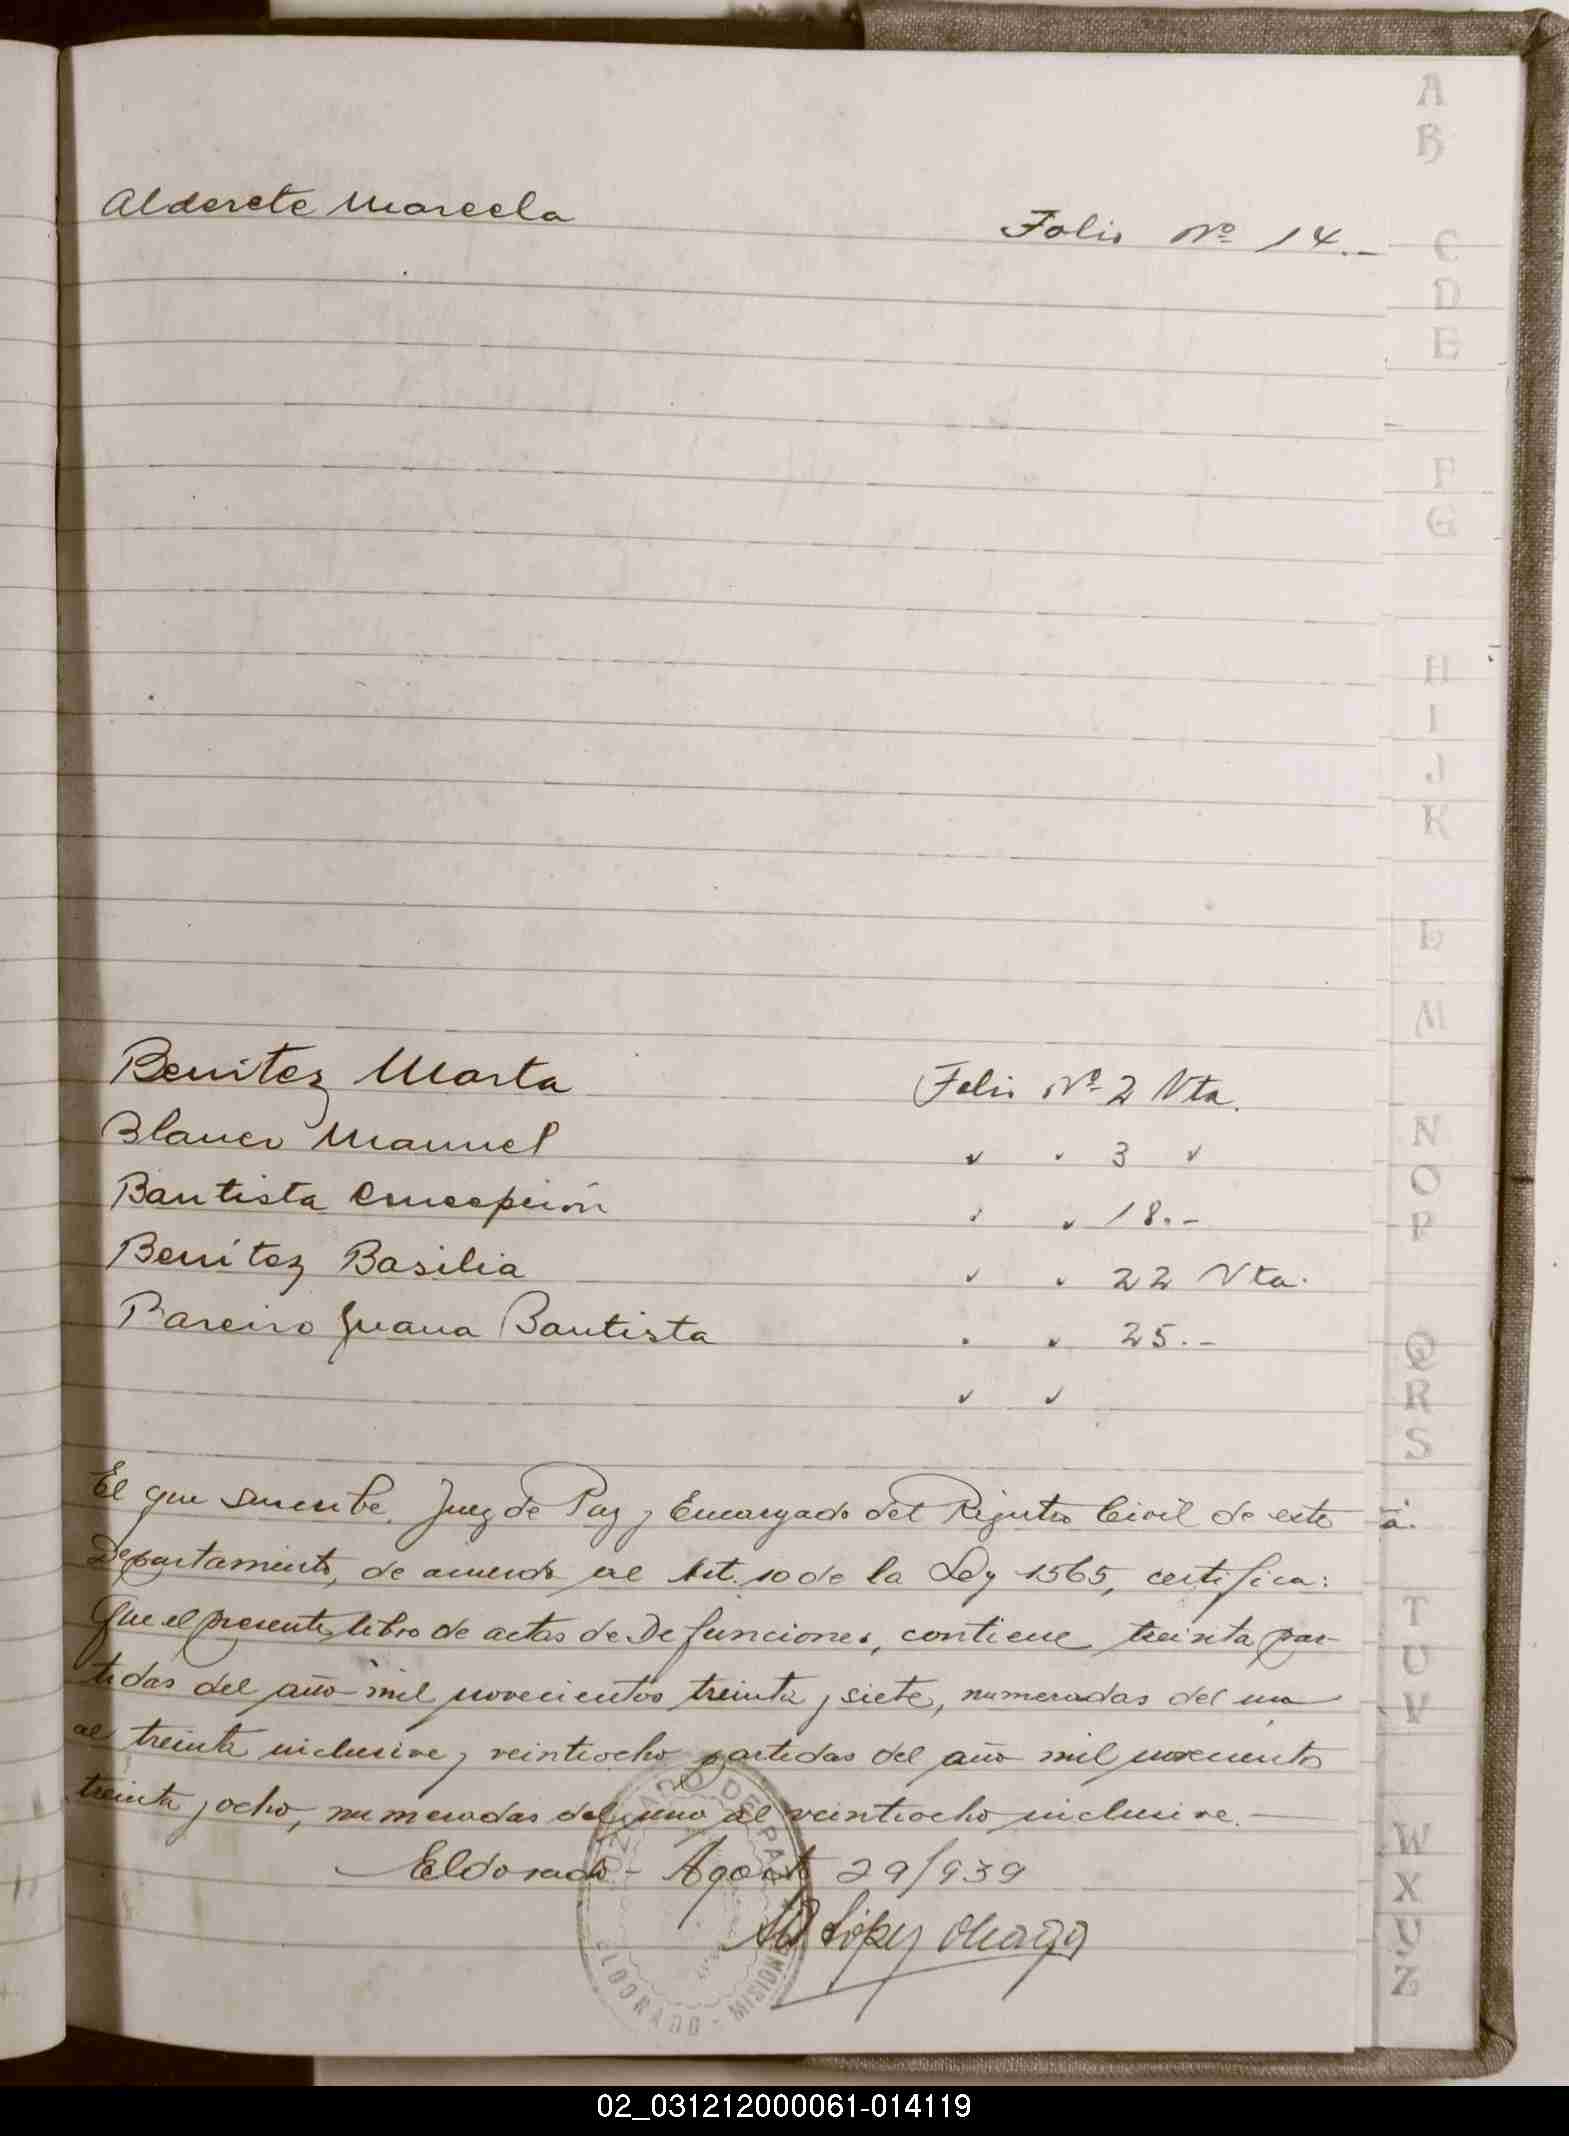 Alderete Marcela Folio Nº 14.-
Benitez Marta Folio Nº 2 Vta.
Blanco Manuel " " 3 "
Bautista Concepción " " 18.-
Benítez Basilia " " 22 Vta.
Bareiro Juana Bautista " " 25.-
" "
El que suscribe, Juez de Paz y Encargado del Registro Civil de este
Departamento, de acuerdo al Art. 10 de la Ley 1565, certifica:
Que el presente libro de actas de Defunciones, contiene treinta par-
tidas del año mil novecientos treinta y siete, numeradas del uno
al treinta inclusive y veintiocho partidas del año mil novecientos
treinta y ocho, numeradas del uno al veintiocho inclusive.-
Eldorado - Agosto 29/939
López
JUZGADO DE PAZ
ELDORADO - MISIONES
A
B
C
D
E
F
G
H
I
J
K
L
M
N
O
P
Q
R
S
T
U
V
W
X
Y
Z
02_031212000061-014119